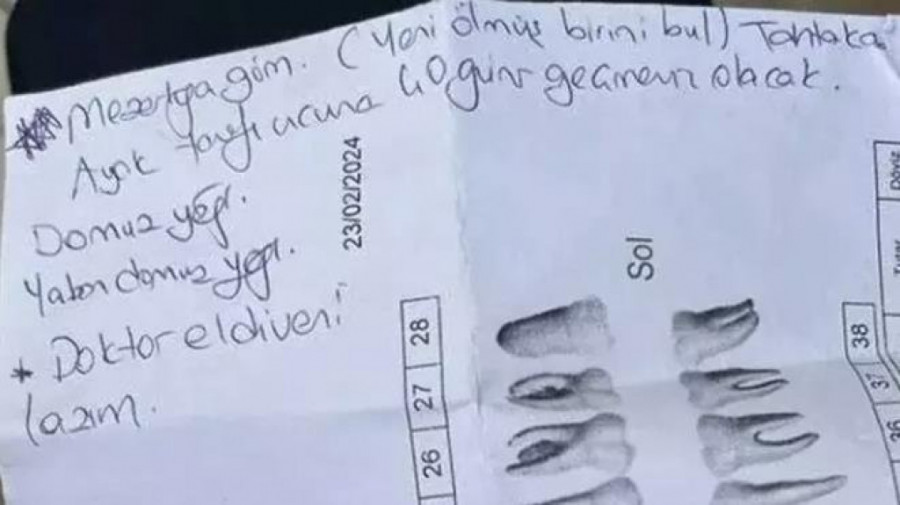 Mezarlığa göm. (Yeni ölmüş birini bul) Tahtaka
Ayak tarafı ucuna 40 günü geçmemiş olacak.
Domuz yağı.
Yaban domuz yağı.
* Doktor eldiveni
lazım.
23/02/2024
Sol
28
27
26
38
37
36